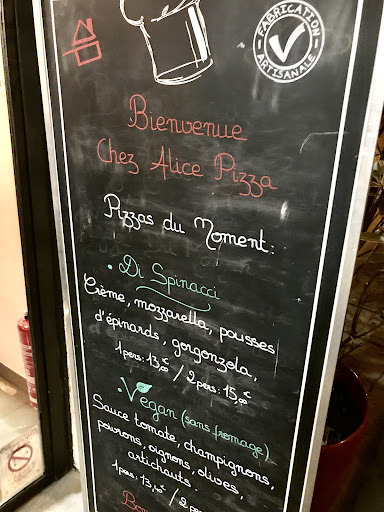 FABRICATION
ARTISANALE
Bienvenue
Chez Alice Pizza
Pizzas du Moment :
• Di Spinacci
Crème, mozzarella, pousses
d'épinards, gorgonzola,
1 pers : 13,00 € / 2 pers : 15,00 €
• Vegan (sans fromage)
Sauce tomate, champignons,
poivrons, oignons, olives,
artichauts.
1 pers : 13,00 € / 2